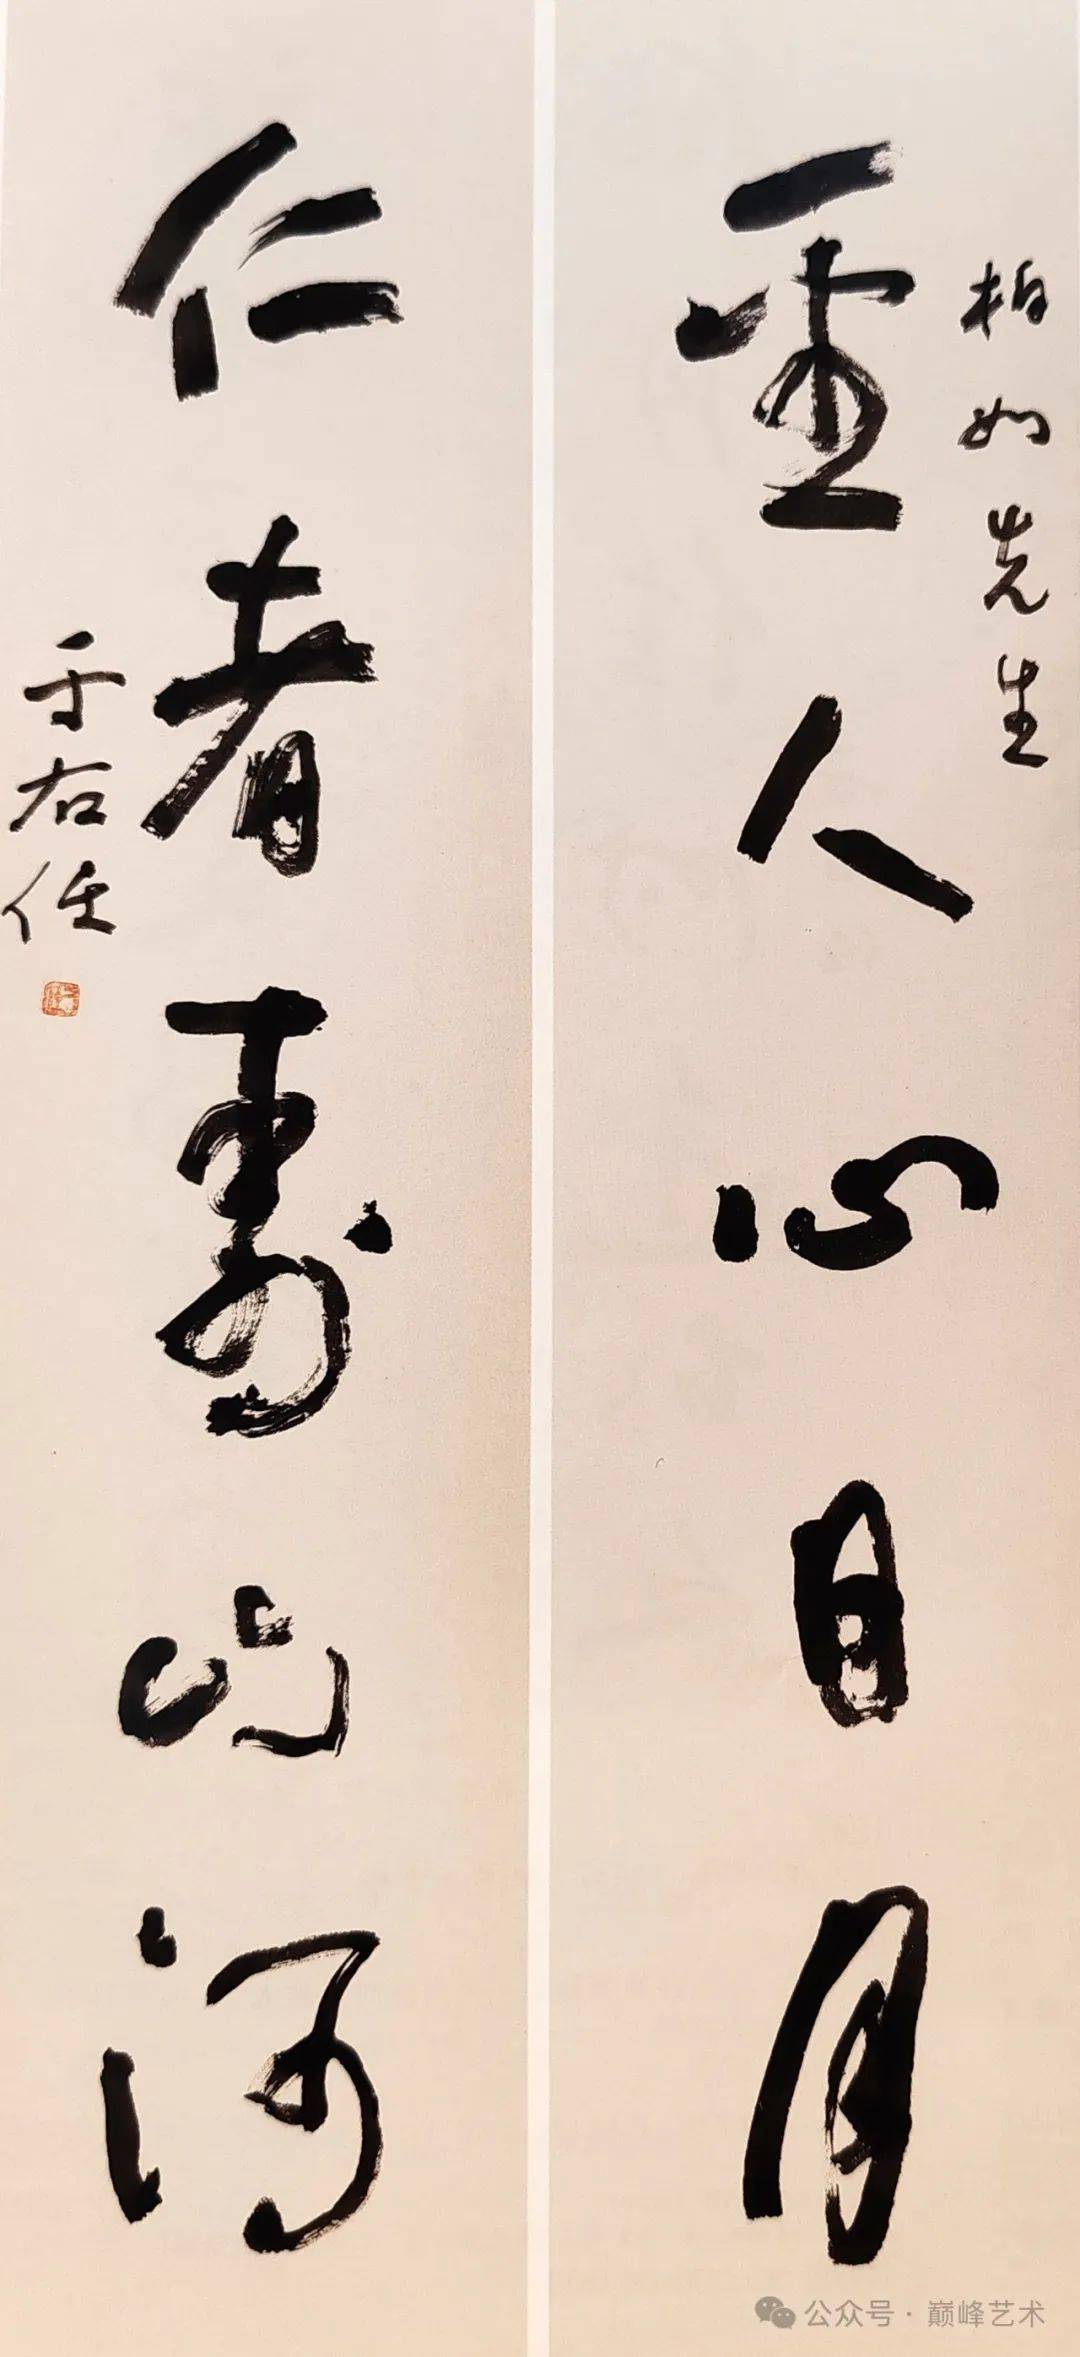 柏如先生
聖人心日月
仁者壽山河
于右任
公众号·巅峰艺术